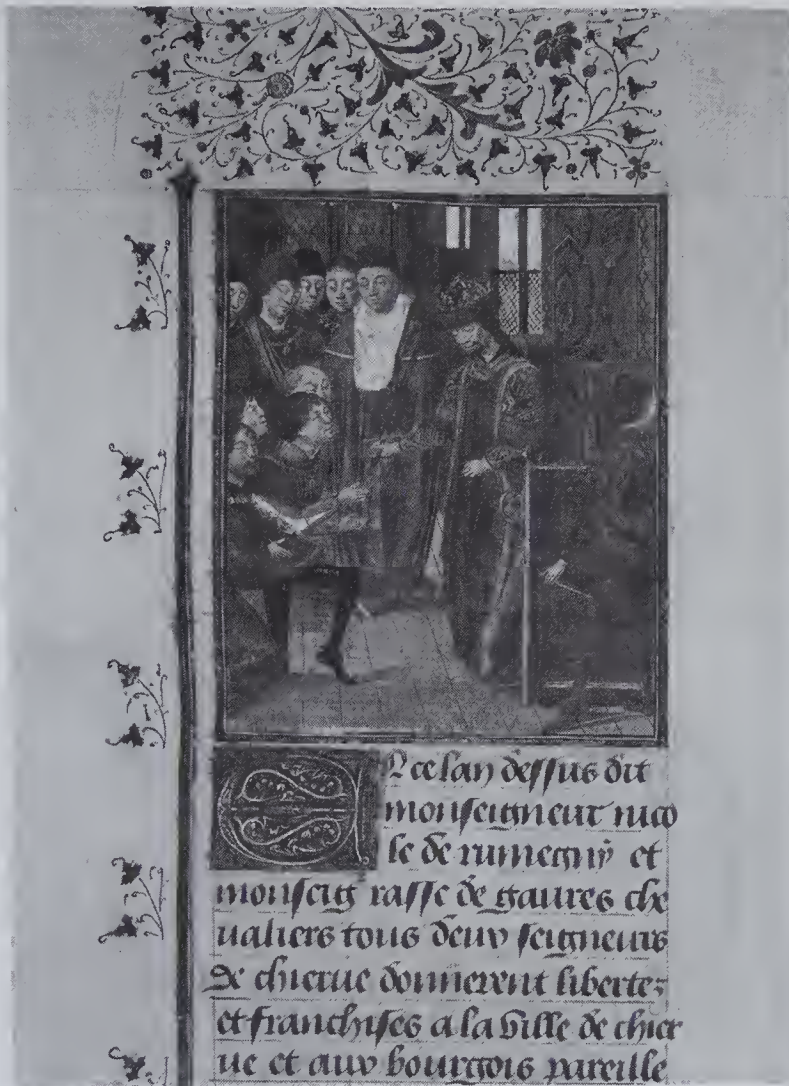 En ce lan dessus dit
monseigneur nico
le de rumegny et
monseig rasse de gaures che
ualiers tous deux seigneurs
de chierue donnerent libertes
et franchises a la ville de chier
ue et aux bourgois pareille